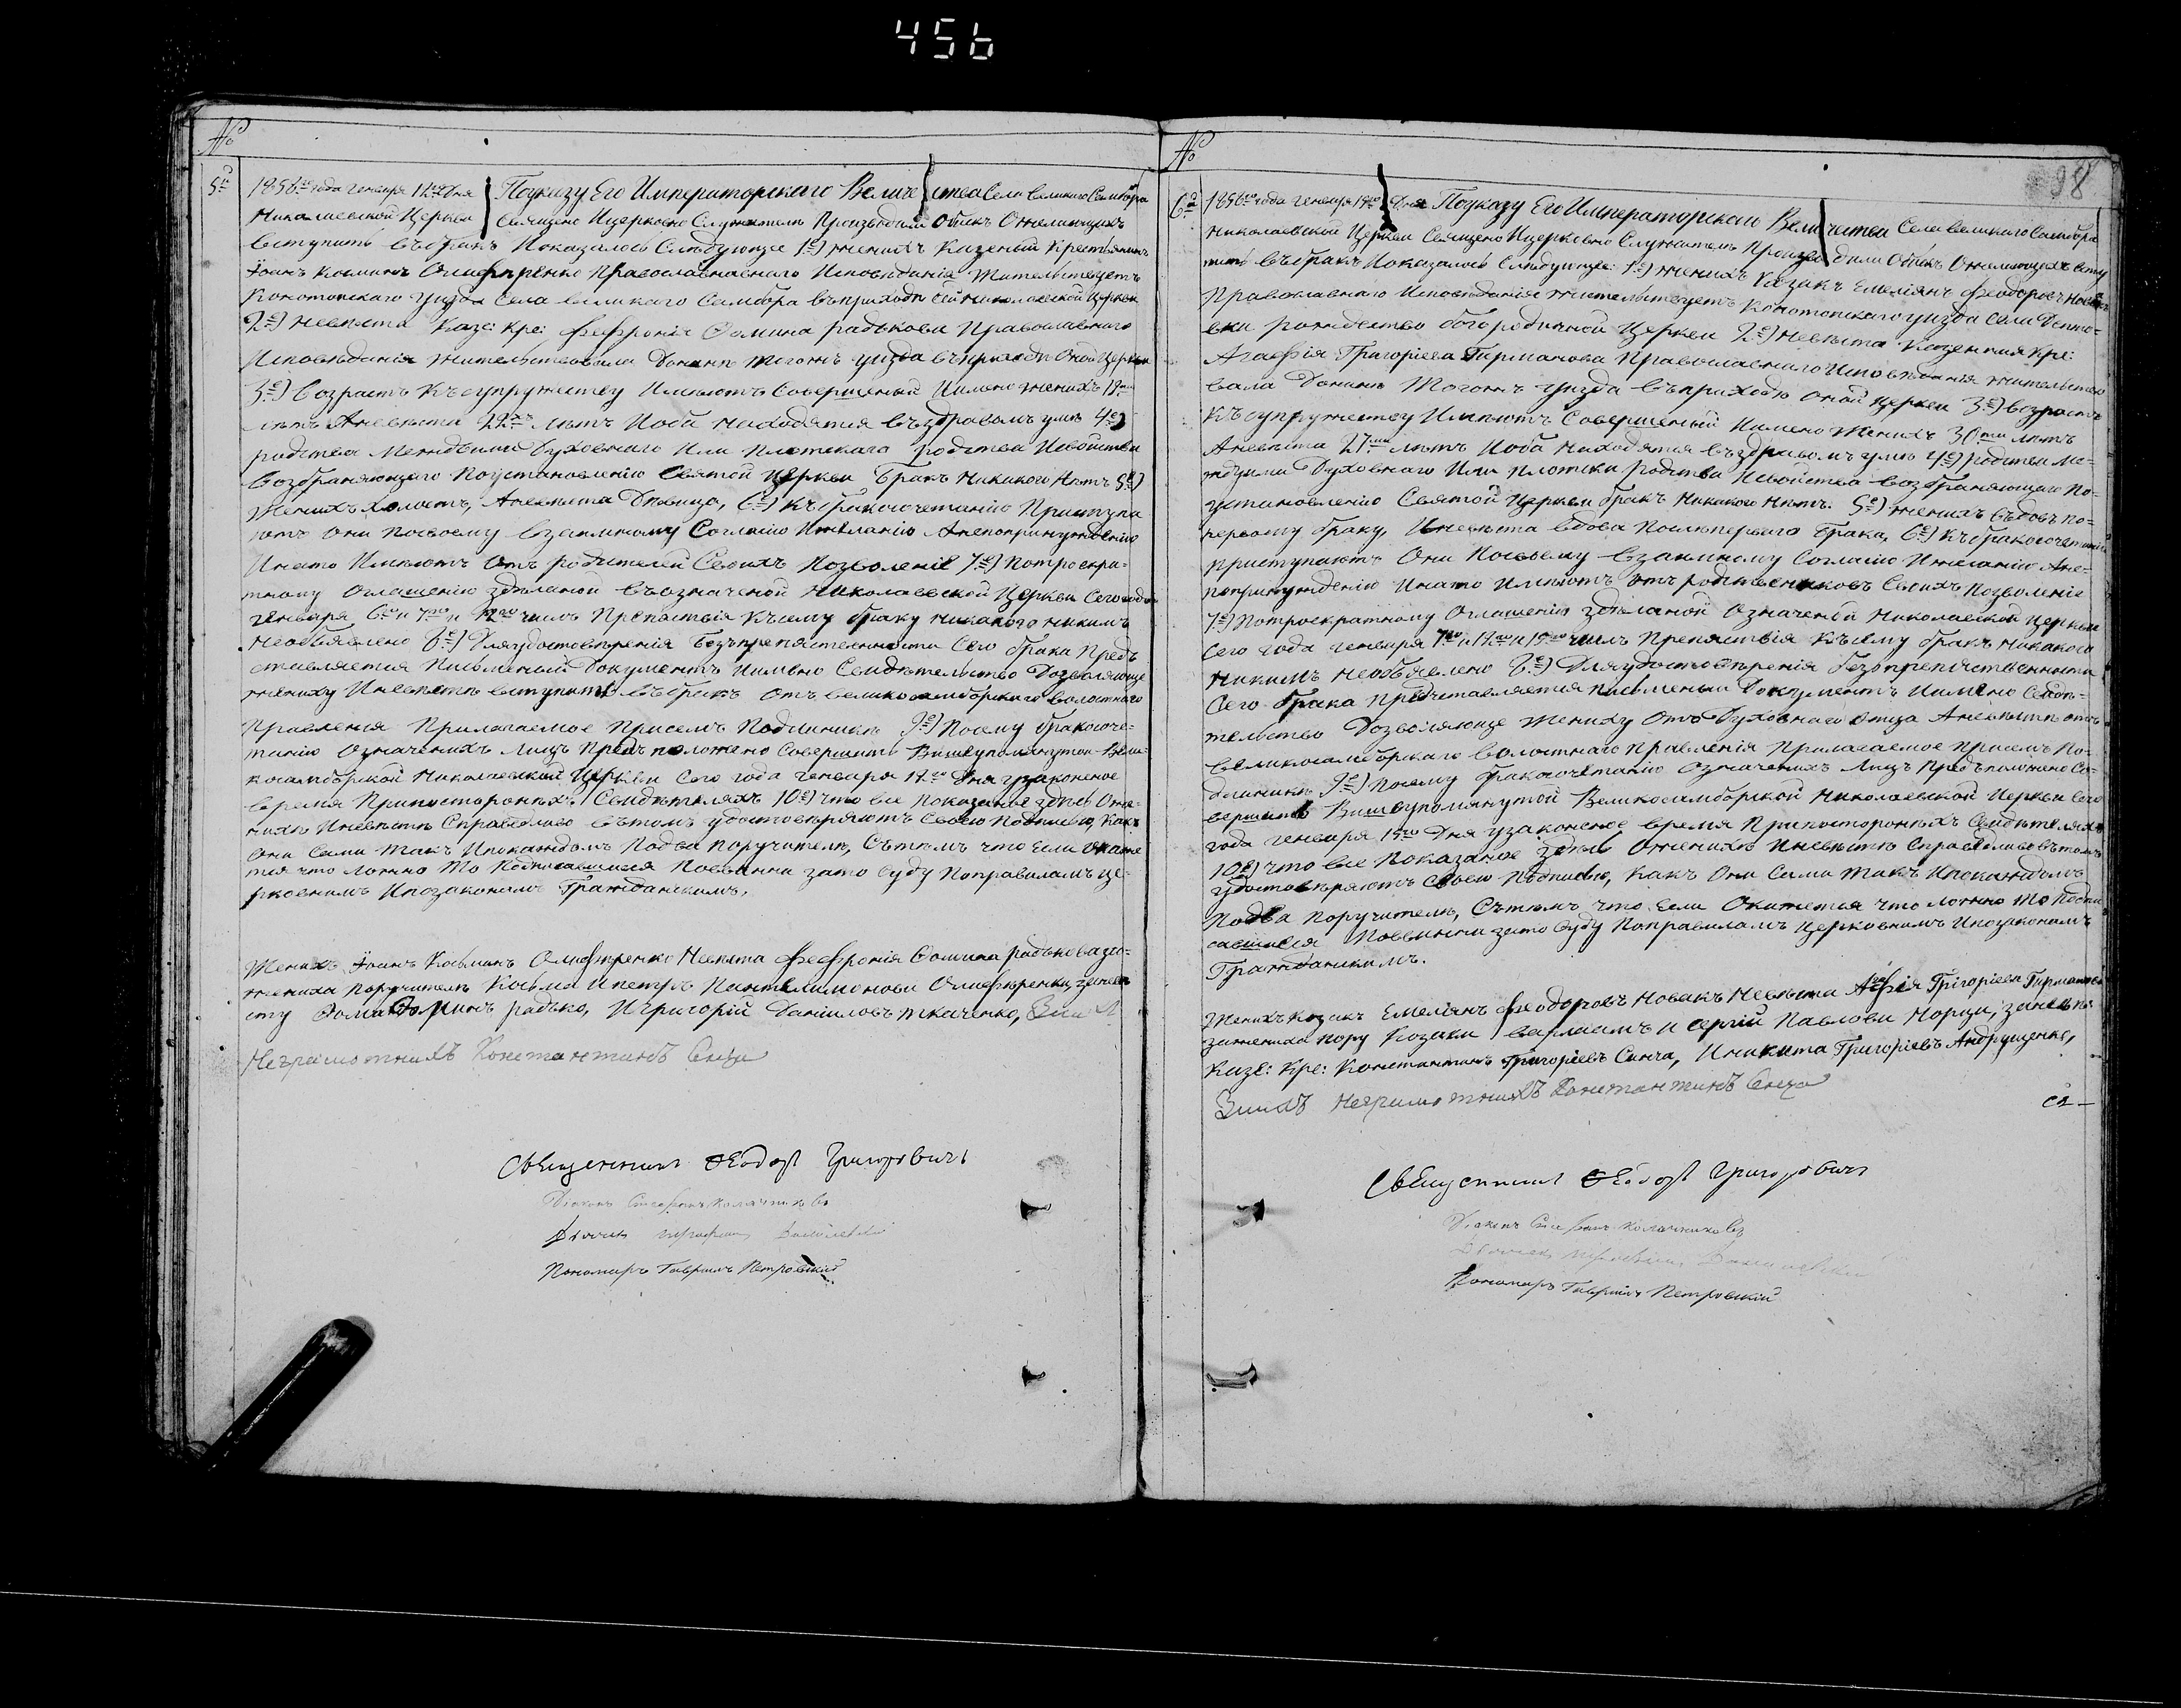 456
№
5е
1856го года генваря 12го дня Поуказу Его Императорского Величества Села великого Самбора
Николаевской Церкви Священо Ицерковно Служитель Производили Обыскъ Ожелающихъ
вступить въбракъ Показалось Слѣдующее 1е) женихъ Казеный Крестьянинъ
Іоанъ Косминъ Олиферренко Православнаго Исповѣданія Жительствуетъ
Конотопскаго уизда Села великаго Самбора въприходѣ сей Николаевской Церкви
2е) невѣста Казе: Кре: Феѳронія Ѳомина радькова Православного
Исповѣданія жительствовала Донинѣ Тогожъ уизда въприходѣ Оной Церкви
3е) Возрастъ Късупружеству Имѣютъ Совершеный Имено женихъ 19
лѣтъ Аневѣста 22хъ лѣтъ Иоба находятся въздравомъ умѣ 4е)
родства Междьими Духовного Или плотского родства Исвойства
Возбраняющего Поустановленію Святой Церкви Бракъ Никакого Нѣтъ 5е)
Женихъ холостъ, Аневѣста Дѣвица, 6е) Къбракосочетанію Приступа
ютъ Они Посвоему Взаимному Согласію Ижеланію Анепопринужденію
Инато Имѣютъ Отъ родителей Своихъ Позволеніе 7е) Потроекра-
тному Оглашенію зделаной Въозначеной Николаевской Церкви Сего года
генваря 6го и 7го и 12го чисъ Препаствія Късему браку никакого никимъ
необъявлено 8е) Дляудостовѣренія безъпрепятственности Сего брака Предъ
ставляется Писменый Документъ Имено Свидѣтельство Дозволяюще
жениху Иневѣстѣ вступить въбракъ отъ великосамборского волостного
Правленія Прилагаемое Присемъ Подлиникъ 9е) Посему бракосоче-
танію Означеныхъ лицъ Предъположено Совершить Вишеупомянутой Вели-
косамборской Николаевской Церкви Сего года генваря 12го Дня узаконеное
время Припостороныхъ Свидѣтеляхъ 10е) что все Показаное здѣсь Оже-
нихѣ Иневѣстѣ Справедливо вътомъ удостовѣряютъ Своею Подписью, Какъ
Они Сами такъ Ипокаждомъ Подва поручителя, Сътѣмъ что Если окаже
тся что ложно То Подписавшіеся Повѣнны зато Суду Поправиламъ це-
рковнимъ Ипозаконамъ Гражданскимъ.
Женихъ Іоанъ Косьминъ Олиферренко Невѣста Феѳронія Ѳомина радькова за-
жениха поручители Косьма Ипетръ Пантелимонови Олиферренки, заневѣ
сту Ѳома Фоминъ радько, Игригорій Даніиловъ ткаченко,
Неграмотнихъ Константинъ Синца
Священникъ Ѳеодоръ Григоровичъ
Діаконъ Стефанъ Колачниковъ
Пономаръ Гавріилъ Петровскій
№
98
6е
1856го года генваря 19го Дня Поуказу Его Императорского Величества Села великого Самбора
Николаевской Церкви Священо Ицерковно Служитель Производили Обыскъ Ожелающихъ всту
пить въбракъ Показалось Слѣдующее: 1е) женихъ Козакъ Емеліянъ Феодоровъ Новакъ
Православнаго Исповѣданія жительствуетъ Конотопскаго уизда Села Дептов-
вки рождество богородичной Церкви 2е) невѣста Казенная Кре:
Агаѳія Григоріева Гирманова Православнаго Исповѣданія жительство
вала Донинѣ Тогожъ уизда въприходѣ оной церкви 3е) возрастъ
Късупружеству Имѣютъ Совершеный Имено Женихъ 30ти лѣтъ
Аневѣста 27ми лѣтъ Иоба Находятся въздравомъ умѣ 4е) родства Ме-
ждуими Духовнаго Или плотски родства Исвойства возбраняющаго По-
установленію Святой Церкви бракъ Никакого Нѣтъ. 5е) женихъ вдовъ по-
первому браку, Иневѣста вдова Послѣпервого брака, 6е) Къбракосочетанію
приступаютъ Они Посвоему Взаимному Согласію Ижеланію Ане-
попринужденію Инато Имѣютъ отъ родственниковъ Своихъ Позволеніе
7е) Потроекратному Оглашенію зделаной Означеной Николаевской Церкви
Сего года генваря 7го и 12го и 19го чисъ Препяствія Късему бракъ Никакого
Никимъ Необъявлено 8е) Дляудостовѣренія безъпрепятственности
Сего брака Представляется писменый Документъ Имено Свидѣ-
тельство Дозволяюще Жениху Отъ Духовнаго отца Аневѣстѣ отъ
великосамборскаго волостнаго Правленія Прилагаемое Присемъ По-
длиникъ 9е) Посему бракосочетанію Означеныхъ Лицъ Предъположено Со-
вершить Вишеупомянутой Великосамборской Николаевской Церкви Сего
года генваря 19го Дня узаконеное время Припостороныхъ Свидѣтеляхъ
10е) что все Показаное здѣсь Оженихѣ Иневѣстѣ Справедливо вътомъ
удостовѣряютъ Своею Подписью, Какъ Они Сами такъ Ипокаждомъ
Подва поручителя, Сътѣмъ что Если Окажется что ложно То Подпи
савшіеся Повѣнны зато Суду Поправиламъ Церковнимъ Ипозаконамъ
Гражданскимъ.
Женихъ козакъ Емеліянъ Феодоровъ Новакъ Невѣста Агаѳія Григоріева Гирманова
зажениха пору Козаки Варлаамъ и Сергій Павлови Норци, заневѣс
Казе: Кре: Константинъ Григоріевъ Синча, Иникита Григоріевъ Андрущенко,
Заихъ неграмотнихъ Константинъ Синца
Священникъ Ѳеодоръ Григоровичъ
Діаконъ Стефанъ Колачниковъ
Пономаръ Гавріилъ Петровскій